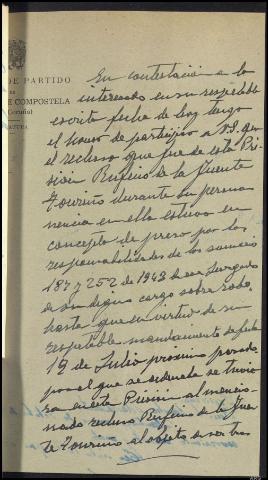 DE PARTIDO
DE
DE COMPOSTELA
(Coruña)
En contestación a lo
interesado en su respetable
escrito fecha de hoy tengo
el honor de participar a V.S. que
el recluso que fue de esta Pri-
sión Rufino de la Fuente
Touriño durante su perma-
nencia en ella estuvo en
concepto de preso por las
responsabilidades de los sumarios
187 y 252 de 1943 de ese Juzgado
de su digno cargo sobre robo,
hasta que en virtud de su
respetable mandamiento de fecha
19 de Julio proximo pasado
por el que se ordenaba se tuvie
ra en esta Prisión al mencio-
nado recluso Rufino de la Fuen
te Touriño al objeto de ser tras